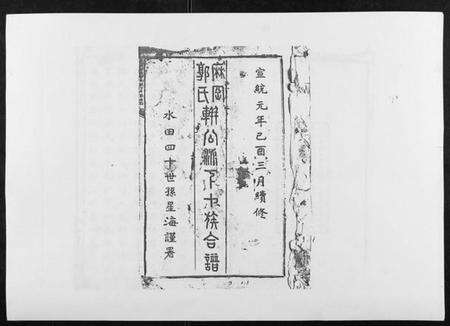 宣統元年己酉三月續修
麻岡
郭氏
軿公派下七族合譜
水田四十世孫星海謹署